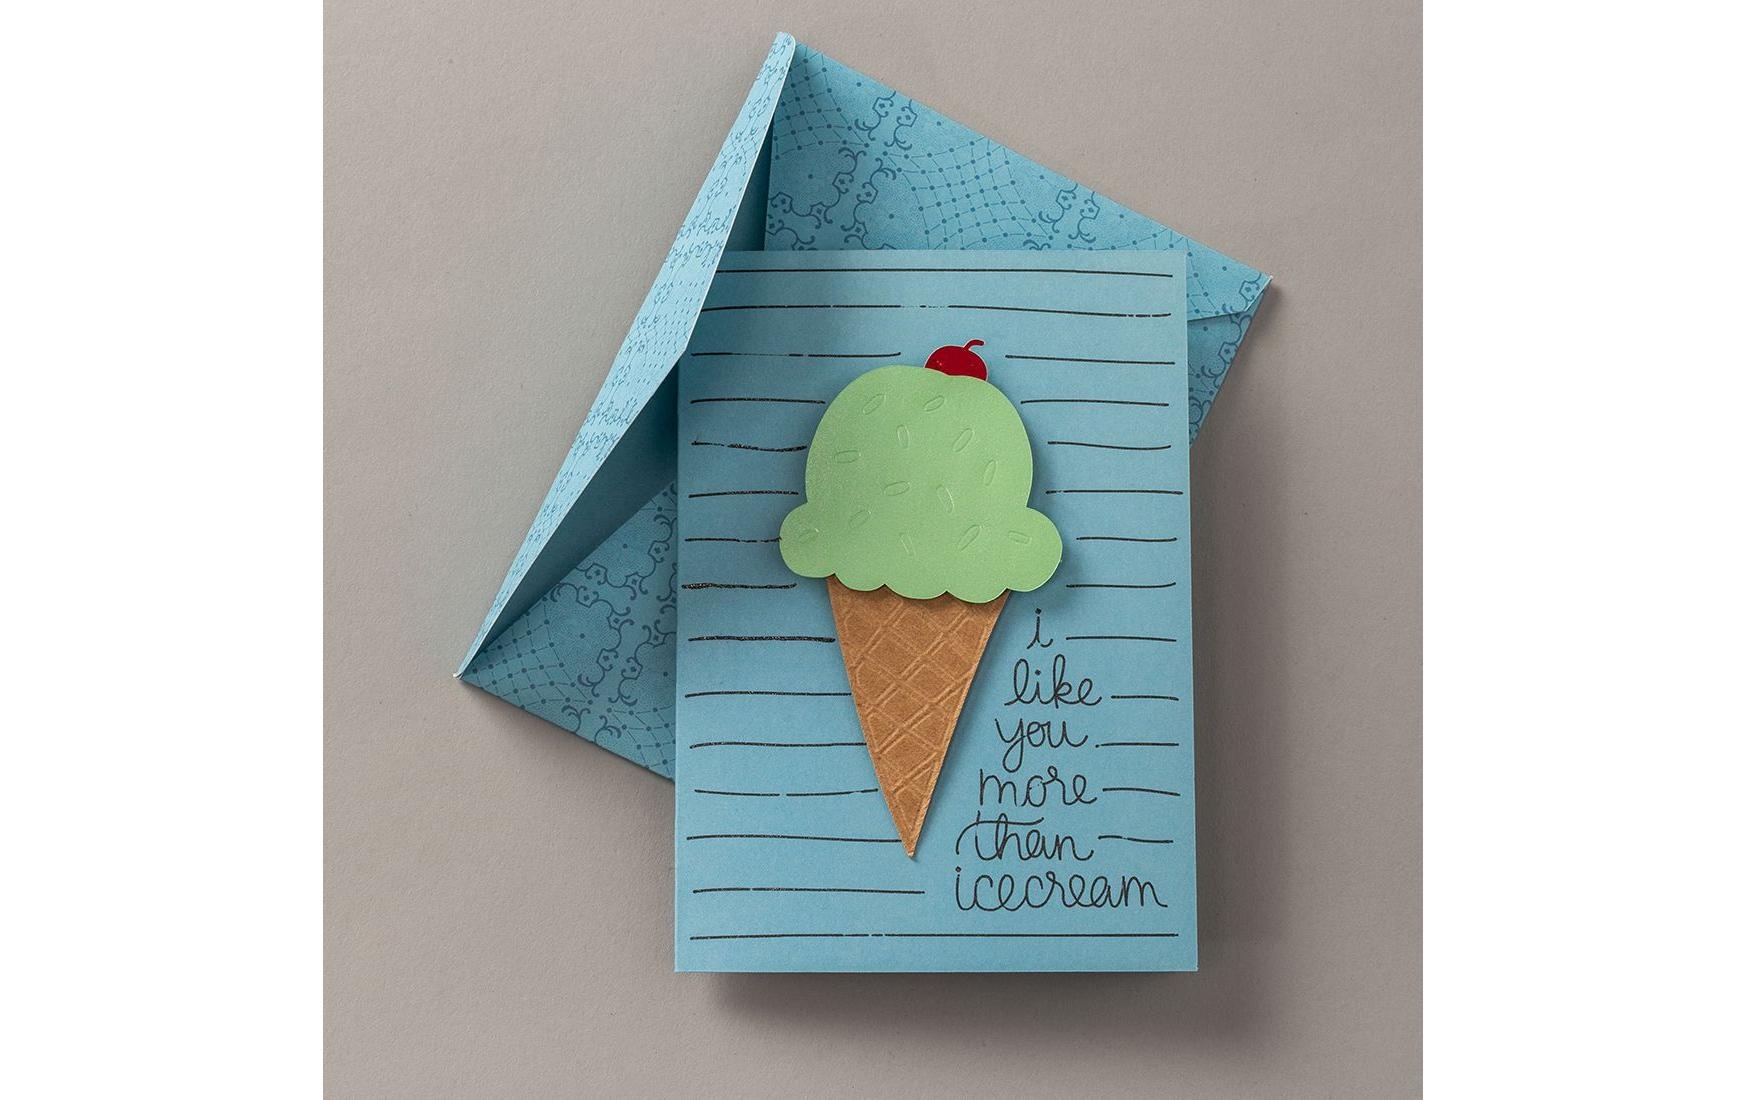 i
like
you
more
than
icecream